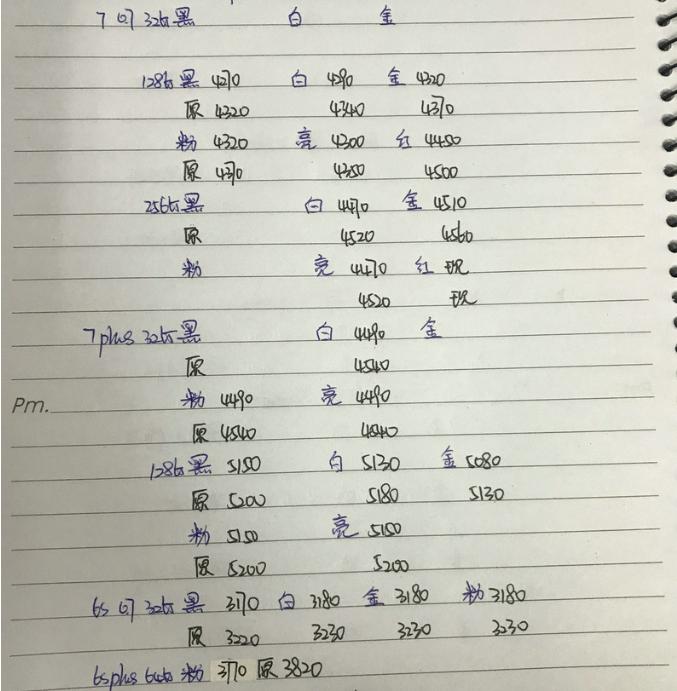 7 07 32G 黑 白 金
128G 黑 4270 白 4290 金 4320
原 4320 4340 4370
粉 4320 亮 4300 红 4450
原 4370 4350 4500
256G 黑 白 4470 金 4510
原 4520 4560
粉 亮 4470 红 现
4520 现
7plus 32G 黑 白 4490 金
原 4540
粉 4490 亮 4490
Pm.
原 4540 4540
128G 黑 5150 白 5130 金 5080
原 5200 5180 5130
粉 5150 亮 5150
原 5200 5200
6s 07 32G 黑 3170 白 3180 金 3180 粉 3180
原 3220 3230 3230 3230
6splus 64G 粉 3770 原 3820